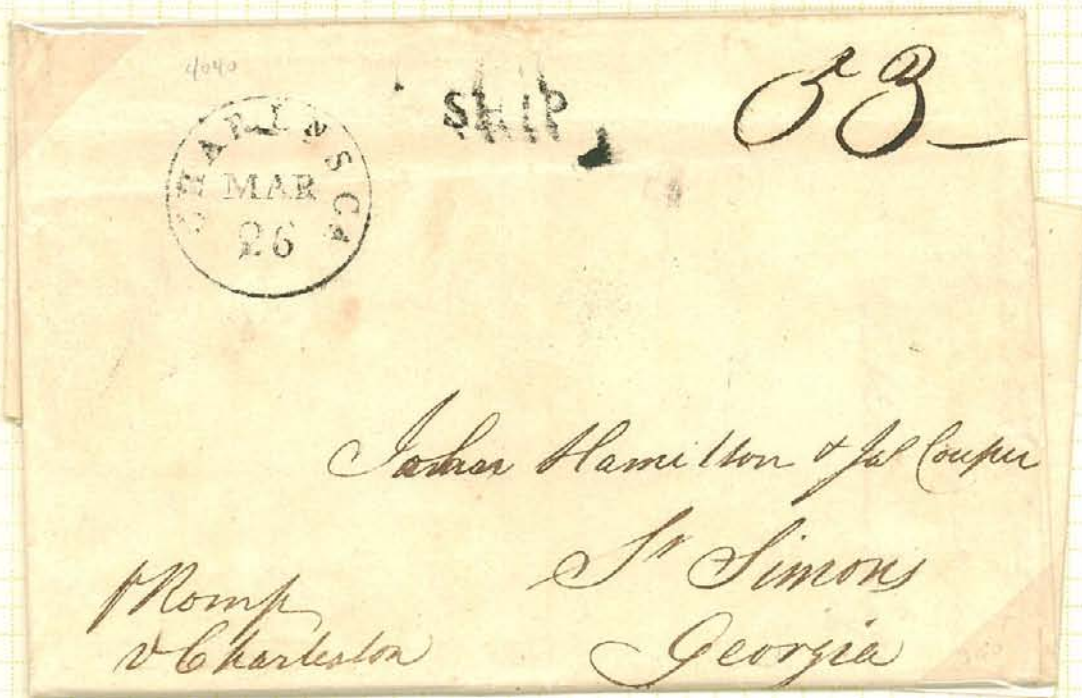 4040
CHARL SCa
MAR
26
SHIP
53
James Hamilton & Jas Couper
St Simons
Georgia
p Romp
v Charleston
360